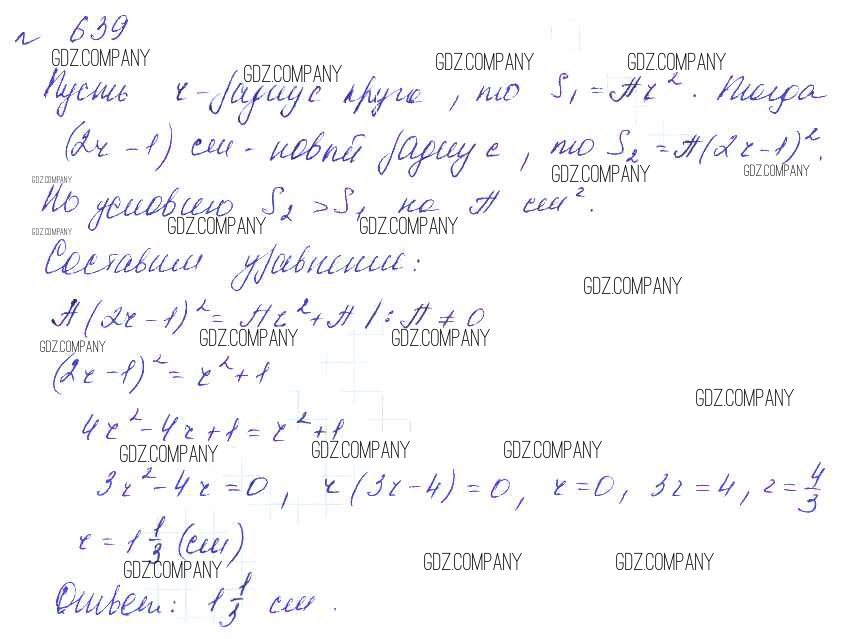 № 639
GDZ.COMPANY GDZ.COMPANY GDZ.COMPANY GDZ.COMPANY
Пусть r - радиус круга, то S₁ = πr². Тогда
(2r - 1) см - новый радиус, то S₂ = π(2r-1)².
GDZ.COMPANY GDZ.COMPANY GDZ.COMPANY
По условию S₂ > S₁ на π см².
GDZ.COMPANY GDZ.COMPANY GDZ.COMPANY
Составим уравнение:
GDZ.COMPANY
π(2r-1)² = πr² + π / : π ≠ 0
GDZ.COMPANY GDZ.COMPANY GDZ.COMPANY
(2r-1)² = r² + 1
GDZ.COMPANY
4r² - 4r + 1 = r² + 1
GDZ.COMPANY GDZ.COMPANY GDZ.COMPANY
3r² - 4r = 0, r(3r-4) = 0, r = 0, 3r = 4, r = 4/3
r = 1 1/3 (см)
GDZ.COMPANY GDZ.COMPANY GDZ.COMPANY
Ответ: 1 1/3 см.